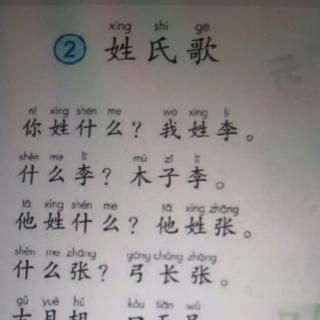 xìng shì gē
② 姓氏歌
nǐ xìng shén me wǒ xìng lǐ
你姓什么？我姓李。
shén me lǐ mù zǐ lǐ
什么李？木子李。
tā xìng shén me tā xìng zhāng
他姓什么？他姓张。
shén me zhāng gōng cháng zhāng
什么张？弓长张。
gǔ yuè hú kǒu tiān wú
古月胡 口天吴